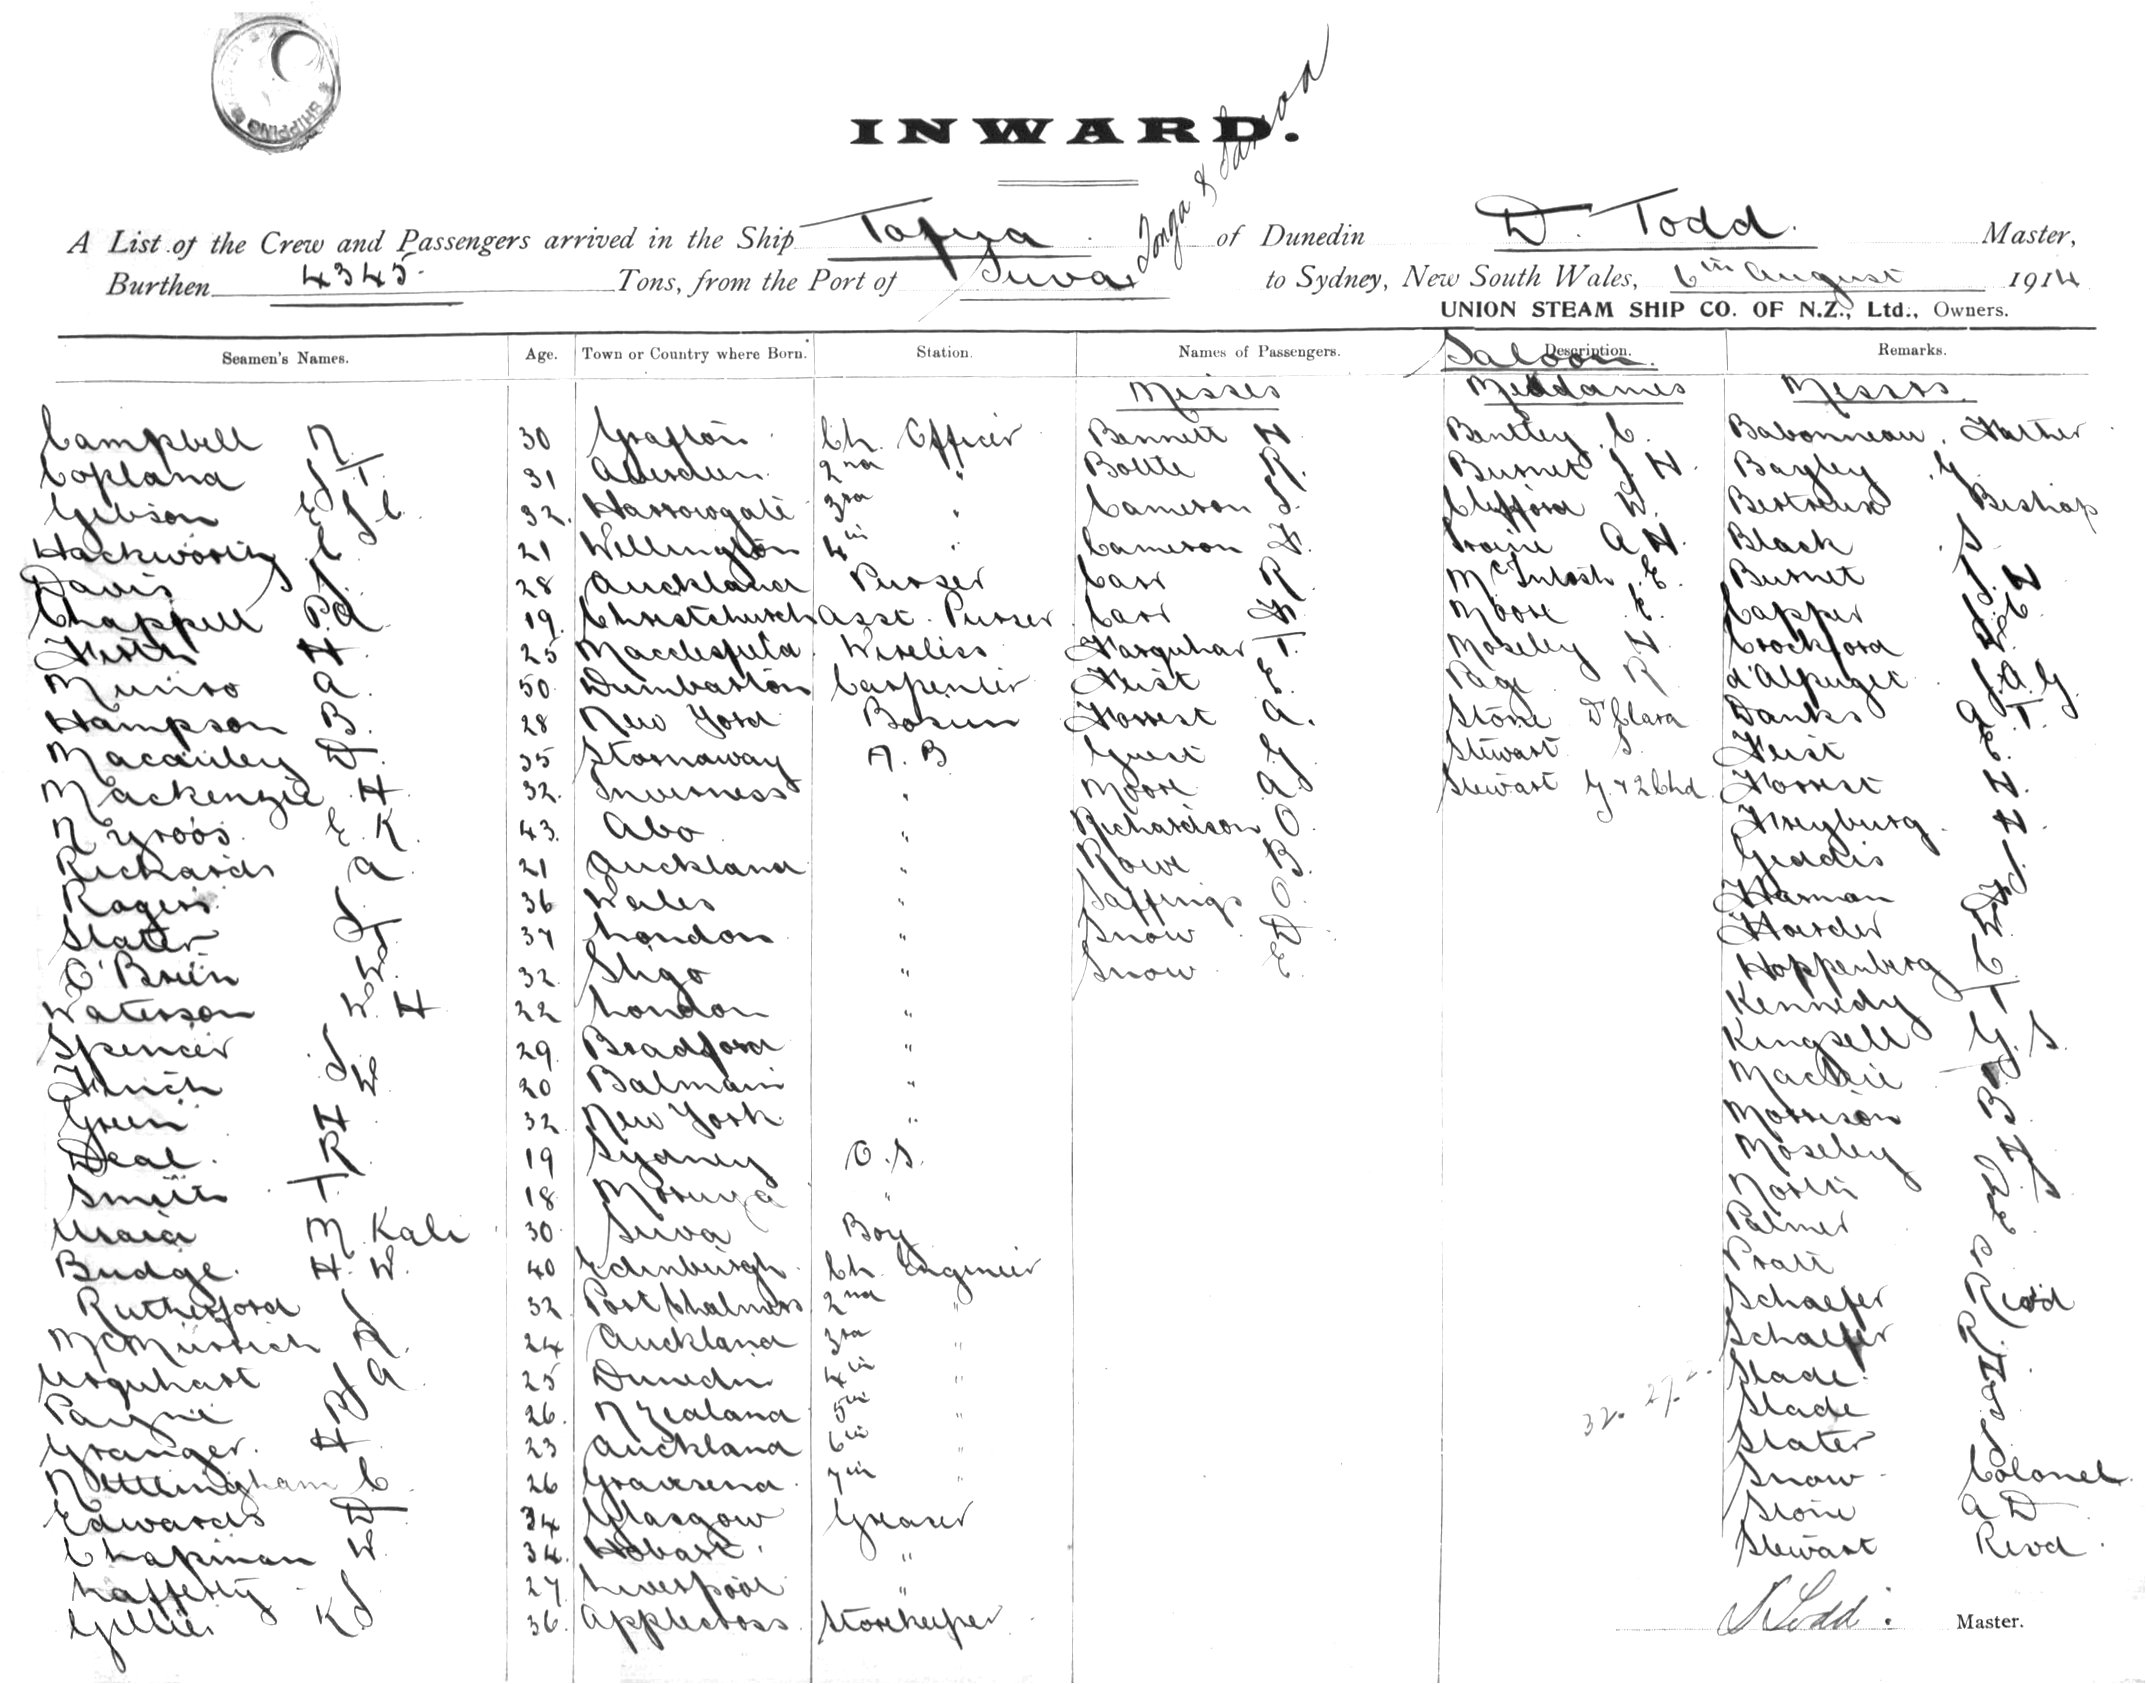 SHIPPING
INWARD.
Tonga & Samoa
A List of the Crew and Passengers arrived in the Ship Tofua of Dunedin D. Todd. Master,
Burthen 4345 Tons, from the Port of Suva to Sydney, New South Wales, 6th August 1914
UNION STEAM SHIP CO. OF N.Z., Ltd., Owners.
Seamen's Names. Age. Town or Country where Born. Station. Names of Passengers. Description. Remarks.
Saloon
Misses Mesdames Messrs
Campbell N. 30 Grafton Ch. Officer Bennett H Bentley C. Babonneau, Father
Copland J T. 31 Aberdeen 2nd " Boltte R. Burnet J H. Bagley G.
Gibson E J C. 32. Harrowgate 3rd " Cameron S. Clifford W. Bertreux Bishop
Hackworthy C. 21 Wellington 4th " Cameron F. Prine A H. Black S
Davis J. 28 Auckland Purser Carr R McIntosh E. Burnet J. H
Chappell P.A 19. Christchurch Asst. Purser Carr F. Moore E. Capper J. C.
Firth H 25 Macclesfield Wireless Farquhar T. Moseley H Crockford W.
Munro A. 50. Dumbarton Carpenter Feist E. Page R d'Alpuget J. A. G.
Hampson B. 28 New York Bosun Forrest A. Stone D'Clara Danks A. T.
Macauley D. 35 Stornaway A. B Guest G Stewart S. Feist E.
Mackenzie H. 32. Inverness " Moore A. Stewart G. & 2 Chd Forrest H.
Nyroos. E. K. 43. Abo " Richardson O. Freyburg. H.
Richards A. 21 Auckland " Rowe B. Geddis J.
Rogers J. 36 Wales " Saffings O. Harman F.
Slater T. 37 London " Snow D. Harder W.
O'Brien W. 32 Sligo " Snow E. Hoppenberg C.
Waterson W. H 22 London " Kennedy T
Spencer J 29 Bradford " Kingsell G. S.
Finch W 20 Balmain " Mackie
Green H 32 New York " Morrison B.
Deal. R. 19 Sydney O. S. Moseley H
Smith T. 18 Moruya " North
Uraia M Kali 30 Suva Boy Palmer E.
Budge. H. W. 40 Edinburgh. Ch. Engineer Pratt P
Rutherford J 32 Port Chalmers 2nd " Schaefer Revd
McMurrich R. 24 Auckland 3rd " Schaefer R.
Urquhart A 25 Dunedin 4th " Slade.
Payne 26. N Zealand 5th " Slade S.
Granger. H 23 Auckland 6th " Slater J
Nettlingham C. 26 Gravesend. 7th " Snow Colonel
Edwards D 34 Glasgow Greaser Stone A D
Chapman W. 34. Hobart. " Stewart Revd.
Lafferty J 27 Liverpool "
Gillies K 36. Applecross Storekeeper
32. 27. 2.
D Todd. Master.